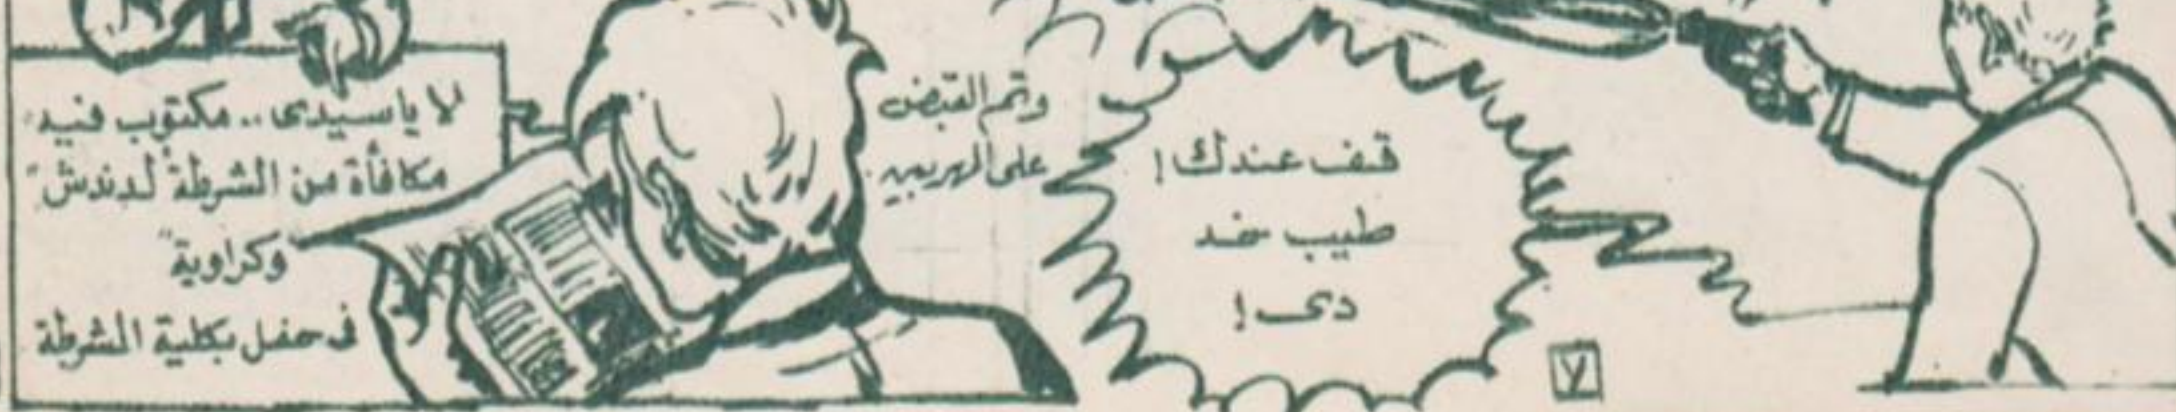 قف عندك!
طيب خد
دى!
٧
وتم القبض
على المهربين.
لا ياسيدى.. مكتوب فيه
مكافأة من الشرطة لدندش"
وكراوية"
فى حفل بكلية الشرطة